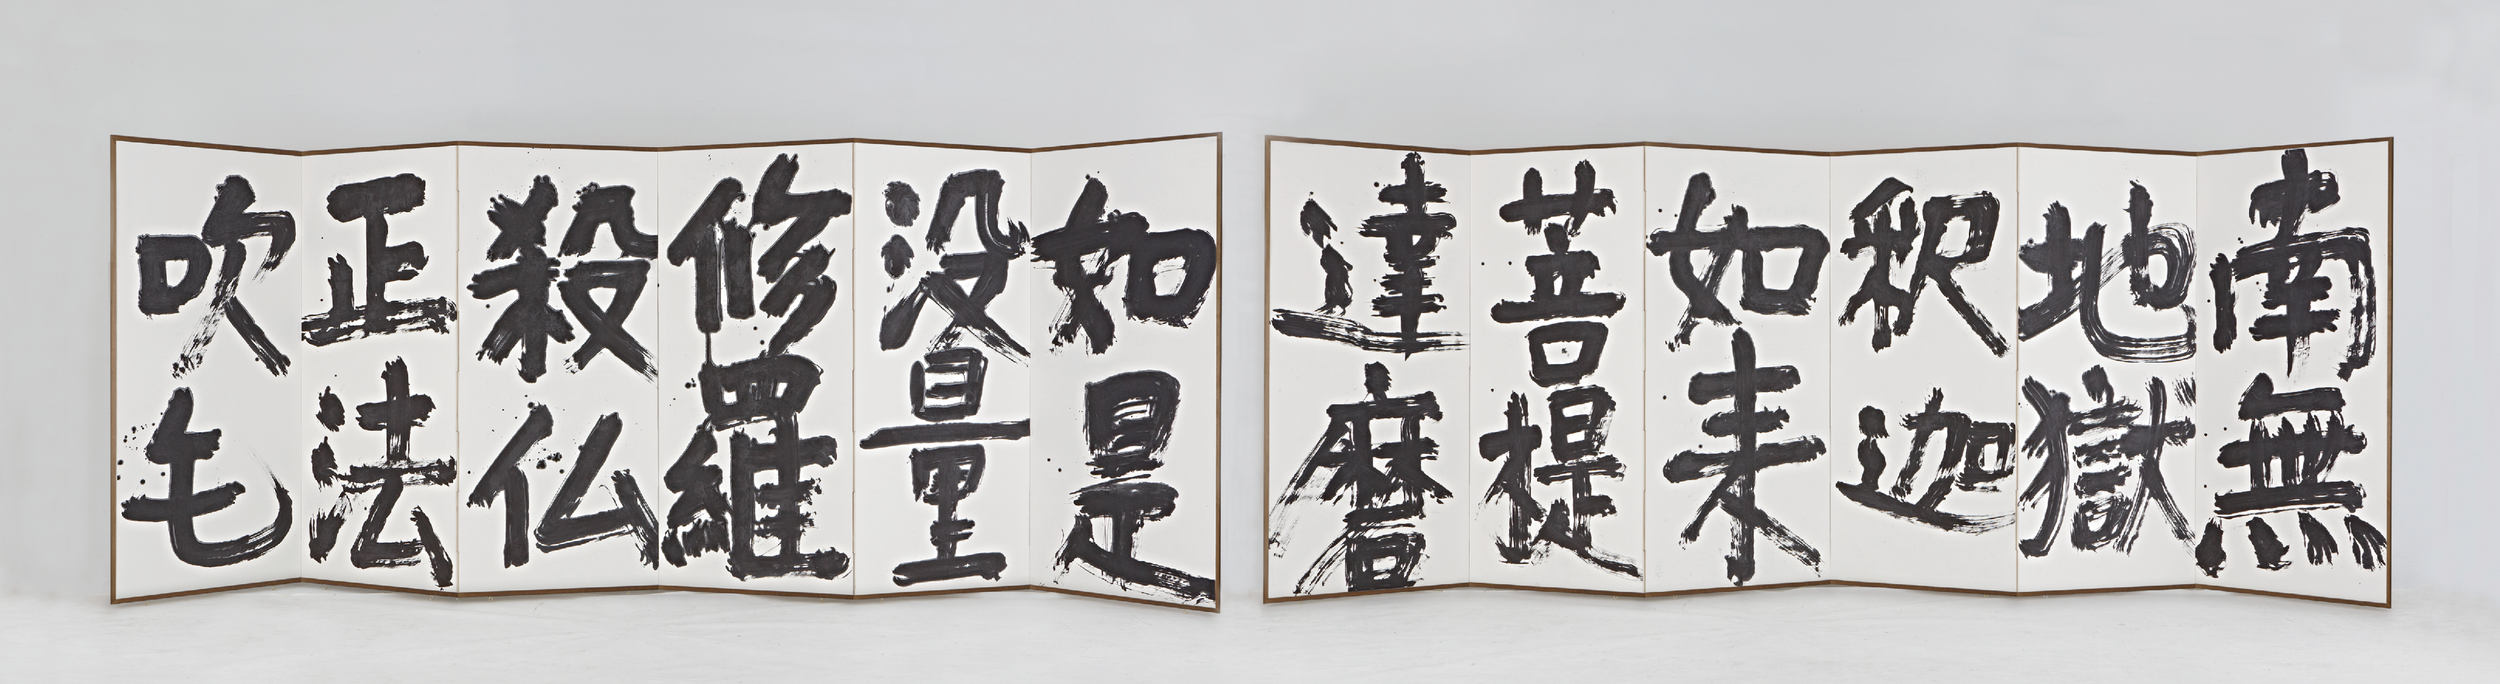 南無
地獄
釈迦
如来
菩提
達磨
如是
没量
修羅
殺仏
正法
吹毛